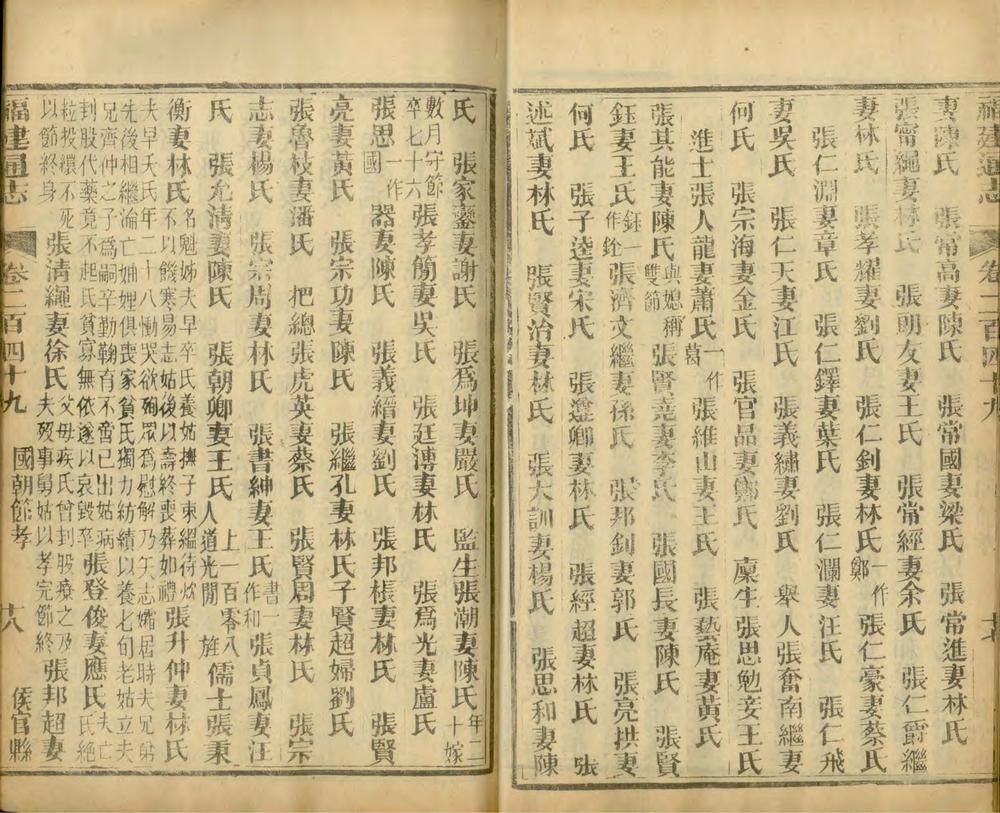 福建通志 卷二百四十九 十七
妻陳氏 張常高妻陳氏 張常國妻梁氏 張常進妻林氏
張甯繩妻林氏 張朝友妻王氏 張常經妻余氏 張仁爵繼
妻林氏 張孝耀妻劉氏 張仁釗妻林氏一作鄭 張仁豪妻蔡氏
張仁淵妻章氏 張仁鐸妻葉氏 張仁瀾妻汪氏 張仁飛
妻吳氏 張仁天妻江氏 張義繡妻劉氏 舉人張奮南繼妻
何氏 張宗海妻金氏 張官品妻鄭氏 廩生張思勉妾王氏
進士張人龍妻蕭氏一作葛 張維山妻王氏 張藝庵妻黃氏
張其能妻陳氏與媳稱雙節 張賢堯妻李氏 張國長妻陳氏 張賢
鈺妻王氏鈺一作銓 張濟文繼妻孫氏 張邦釗妻郭氏 張亮拱妻
何氏 張子逵妻宋氏 張鑾卿妻林氏 張經超妻林氏 張
述斌妻林氏 張賢治妻林氏 張大訓妻楊氏 張思和妻陳
氏 張家鑾妻謝氏 張爲坤妻嚴氏 監生張潮妻陳氏年二十嫁
數月守節卒七十六 張孝簡妻吳氏 張廷溥妻林氏 張爲光妻盧氏
張思一作國器妻陳氏 張義縉妻劉氏 張邦棖妻林氏 張賢
亮妻黃氏 張宗功妻陳氏 張繼孔妻林氏子賢超婦劉氏
張魯枝妻潘氏 把總張虎英妻蔡氏 張賢周妻林氏 張宗
志妻楊氏 張宗周妻林氏 張書紳妻王氏書一作和 張貞鳳妻汪
氏 張允清妻陳氏 張朝卿妻王氏上一百零八人道光間旌 儒士張秉
衡妻林氏名魁姊夫早卒氏養姑撫子東繼待炊不以饑寒易志姑後以壽終喪葬如禮 張升仲妻林氏
夫早夭氏年二十八慟哭欲殉眾爲慰解乃矢志孀居時夫兄弟先後相繼淪亡妯娌俱喪家貧氏獨力紡績以養七旬老姑立夫
兄齊仲之子爲嗣辛勤鞠育不啻已出姑病刲股代藥竟不起氏貧寡無依遂以哀毀卒 張登俊妻應氏夫亡氏絕
粒投繯不死以節終身 張清繩妻徐氏夫歿事舅姑以孝完節終父母疾氏曾刲股療之及 張邦超妻
福建通志 卷二百四十九 國朝節孝 十八 侯官縣